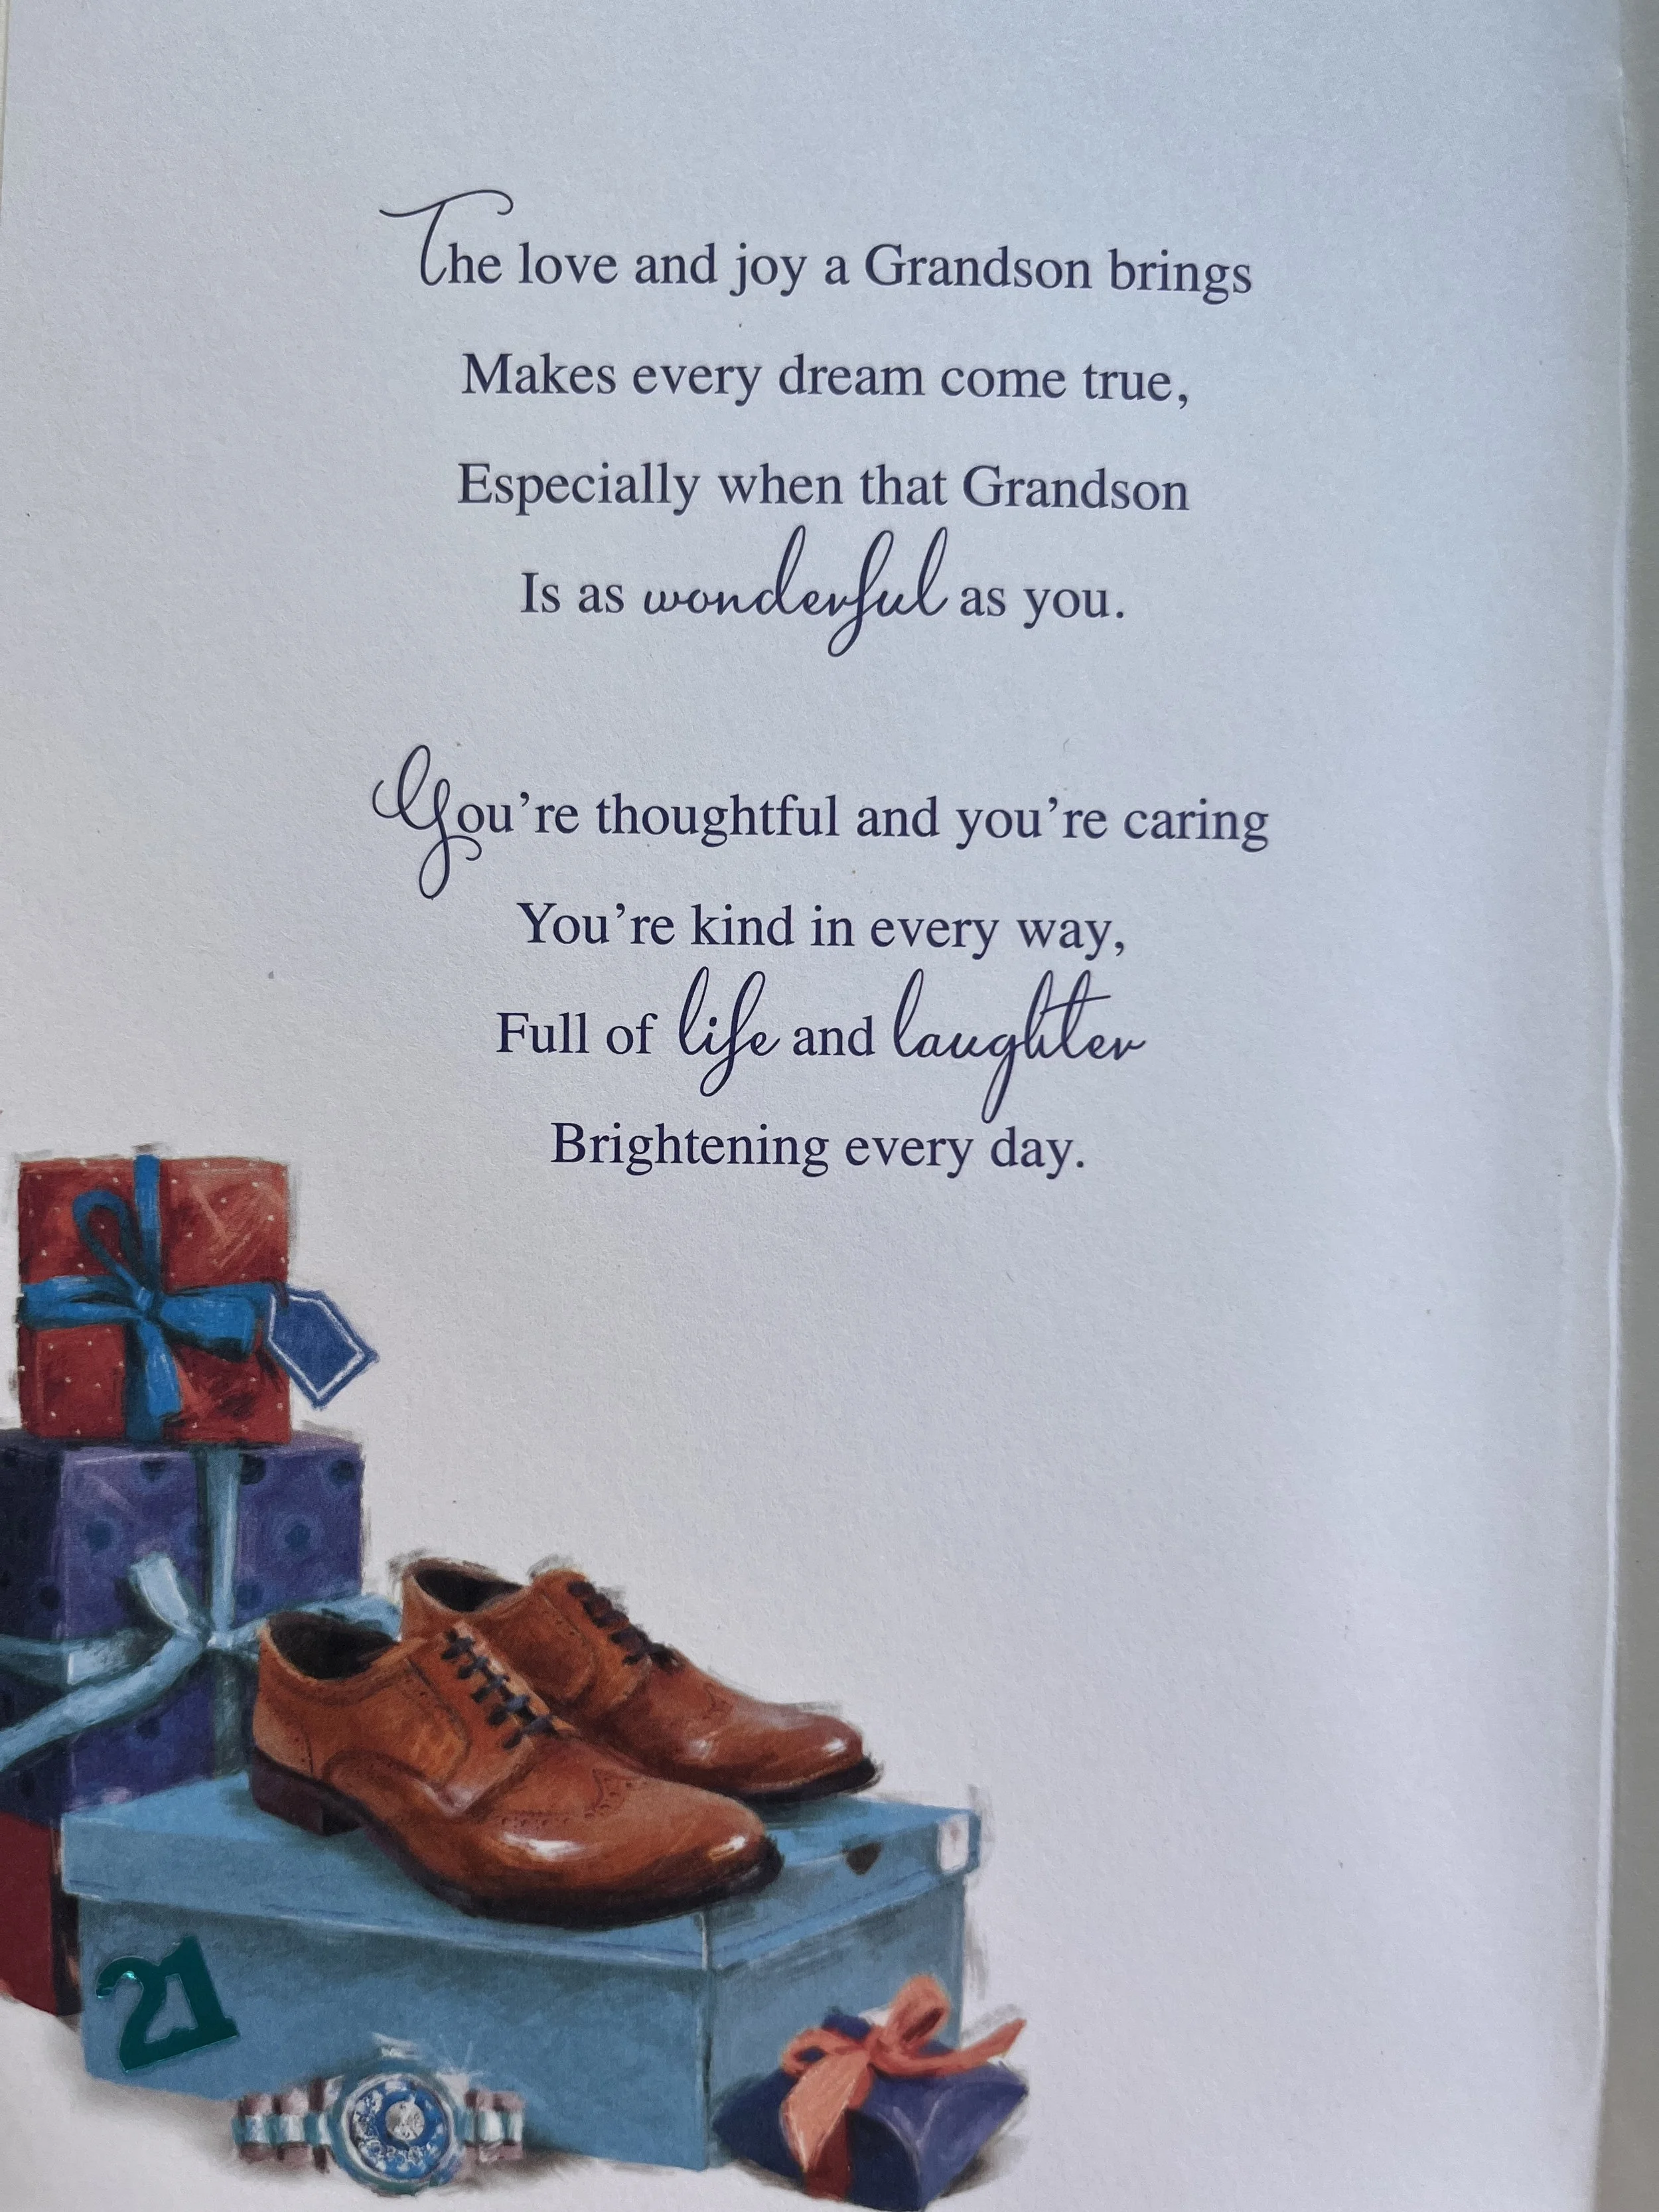 The love and joy a Grandson brings
Makes every dream come true,
Especially when that Grandson
Is as wonderful as you.
You’re thoughtful and you’re caring
You’re kind in every way,
Full of life and laughter
Brightening every day.
21